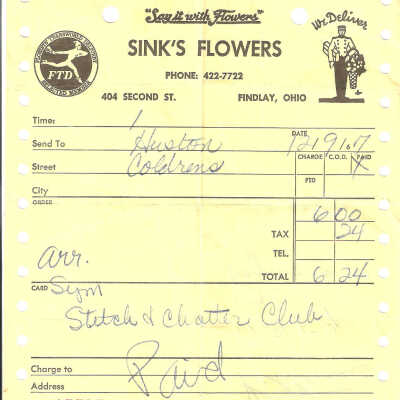 "Say it with Flowers"
We Deliver
SINK'S FLOWERS
FTD
PHONE: 422-7722
404 SECOND ST. FINDLAY, OHIO
Time: 1
DATE 12 9 67
Send To Huston
CHARGE C.O.D. PAID
Street Coldrens X
FTD
City
ORDER
6 00
TAX 24
TEL.
arr.
TOTAL 6 24
CARD Sym
Stitch & Chatter Club
Charge to Paid
Address